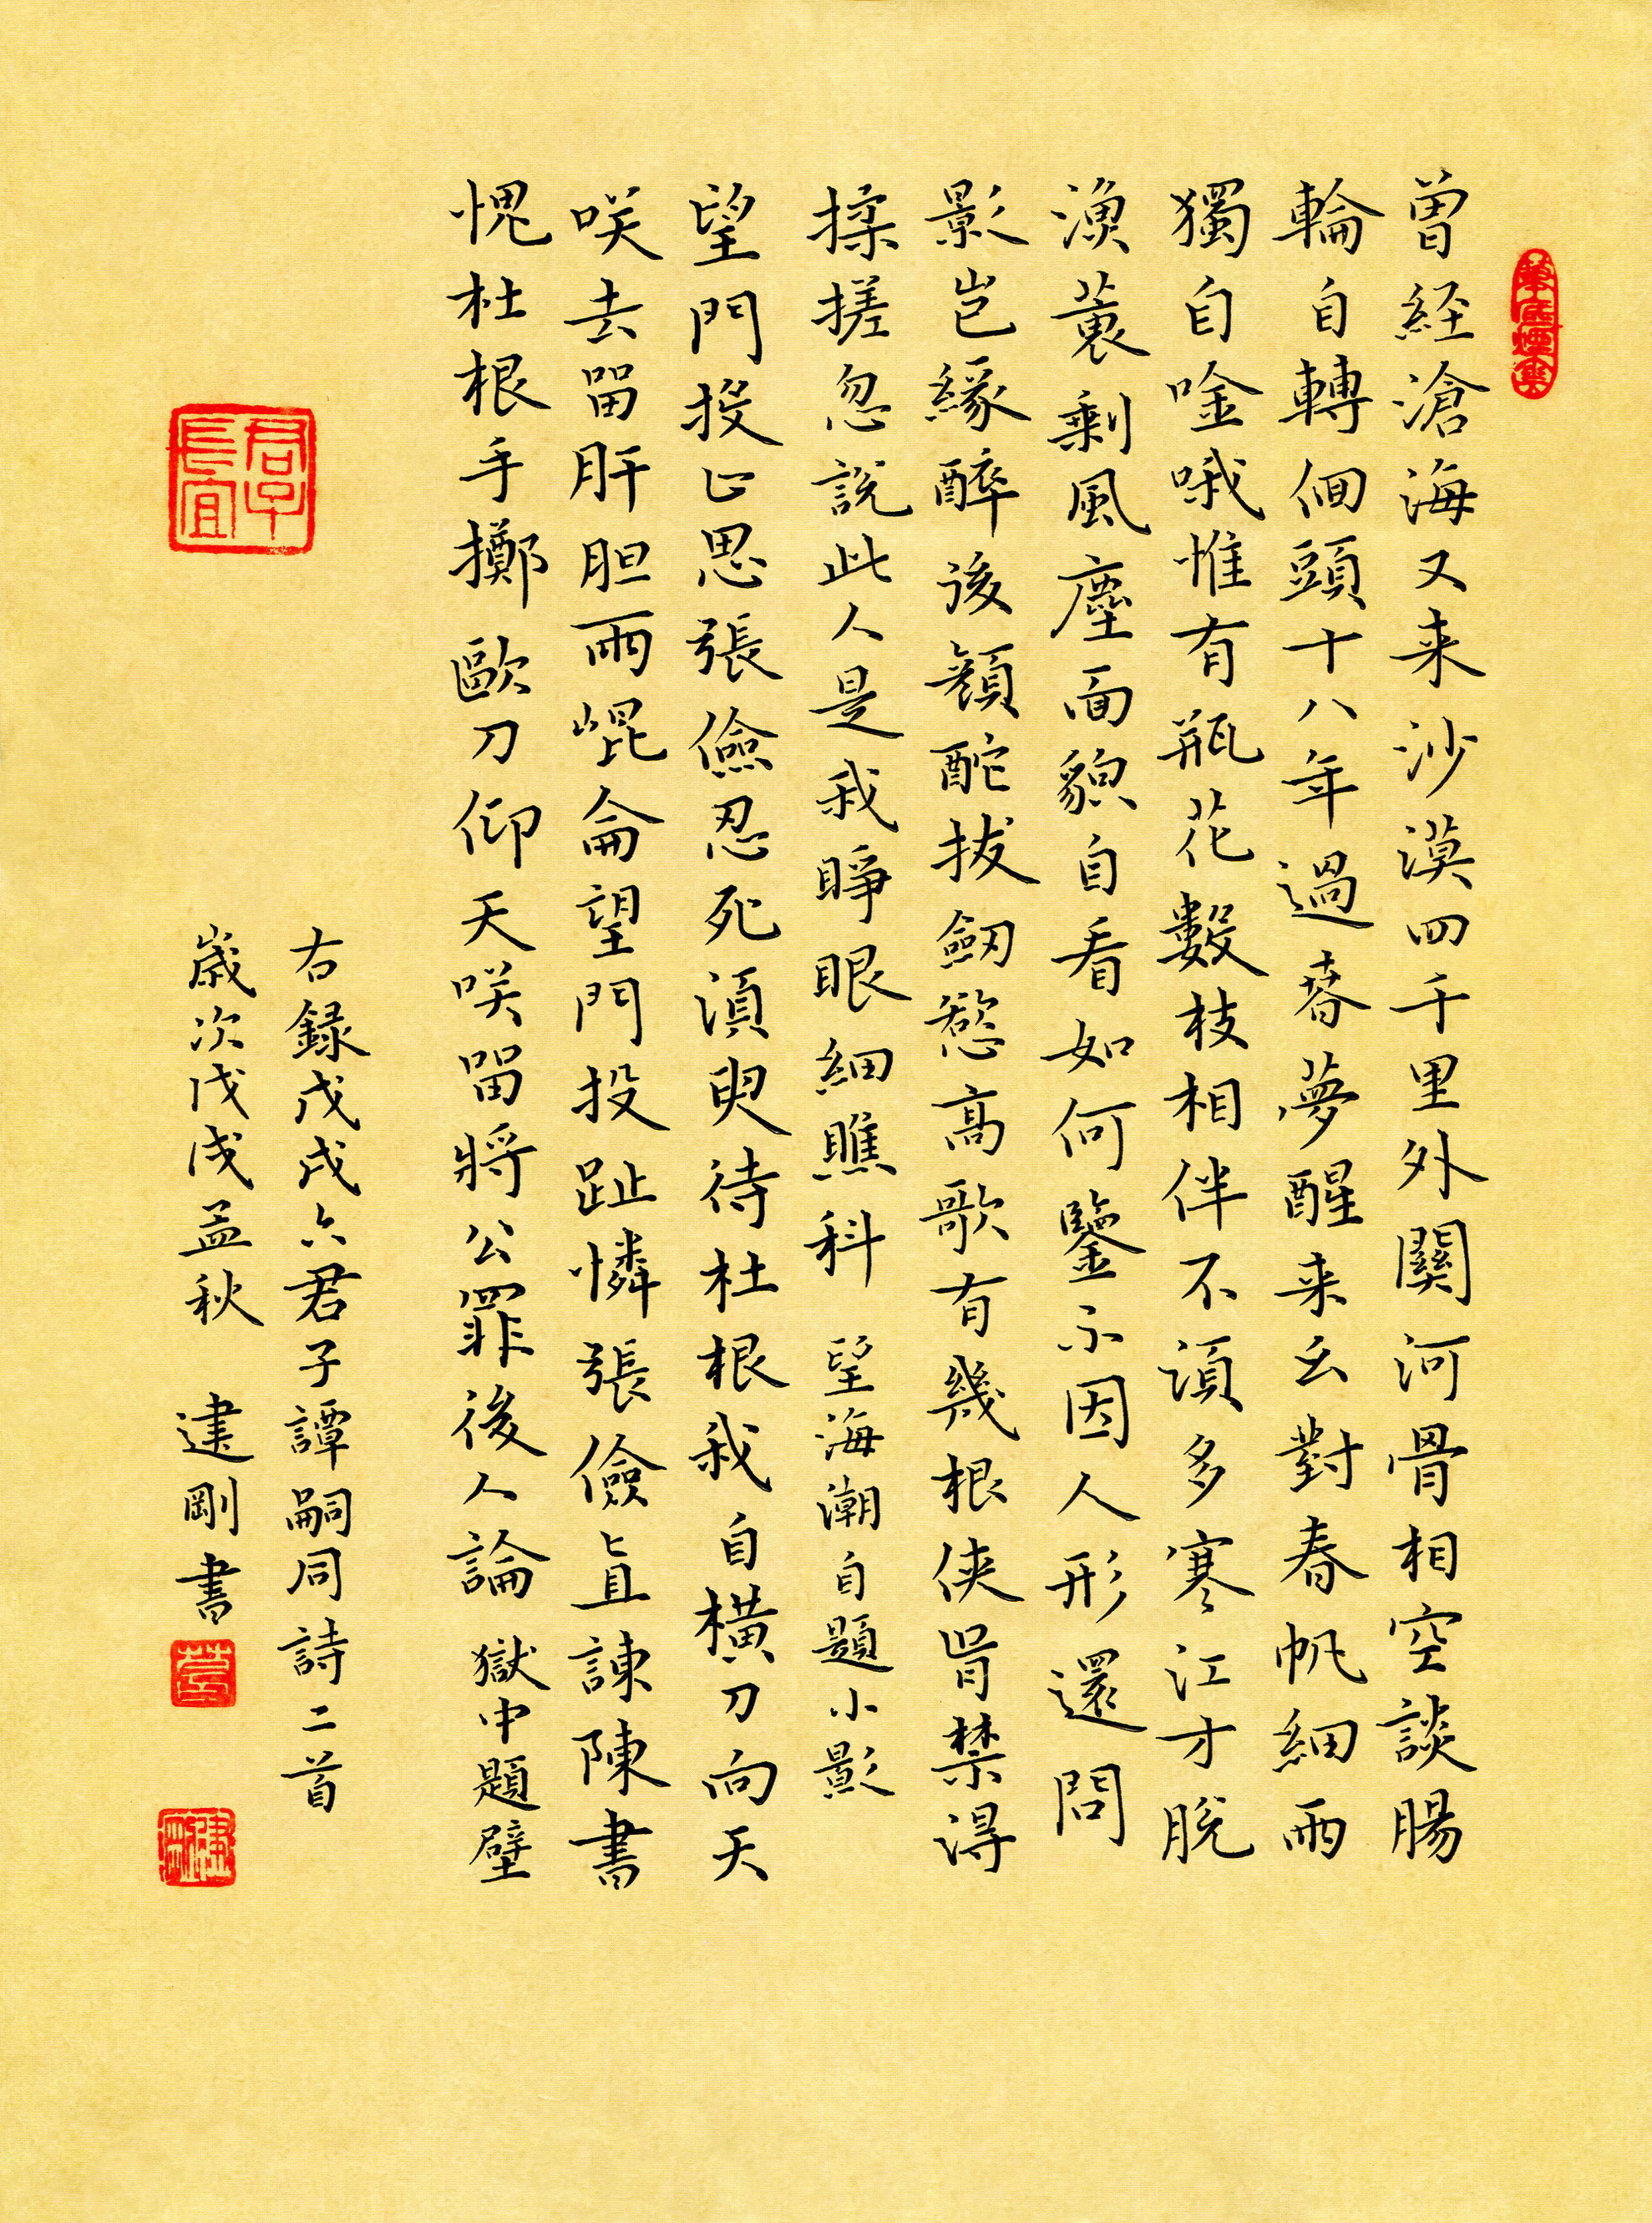 曾経滄海又来沙漠四千里外關河骨相空談腸
輪自轉佪頭十八年過春夢醒来幺對春帆細雨
獨自唫哦惟有瓶花數枝相伴不須多寒江才脫
漁蓑剩風塵面貌自看如何鑒不因人形還問
影豈緣醉後顏酡拔劒慾高歌有幾根侠骨禁得
揉搓忽説此人是我睜眼細瞧科 望海潮自題小影
望門投止思張儉忍死須臾待杜根我自横刀向天
咲去留肝胆兩崐侖望門投趾憐張儉直諫陳書
愧杜根手擲歐刀仰天咲留將公罪後人論 獄中題壁
右録戊戌六君子譚嗣同詩二首
歳次戊戌孟秋 建剛書
君子長宜